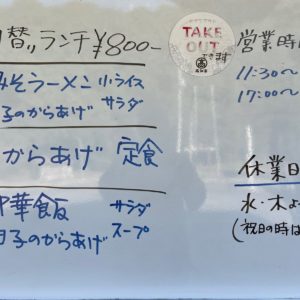 替〃ランチ¥800-
TAKE
OUT
できます
営業時
11:30〜
17:00〜
みそラーメン 小ライス
子のからあげ サラダ
からあげ 定食
中華飯 サラダ
子のからあげ スープ
休業日
水・木よ
(祝日の時は